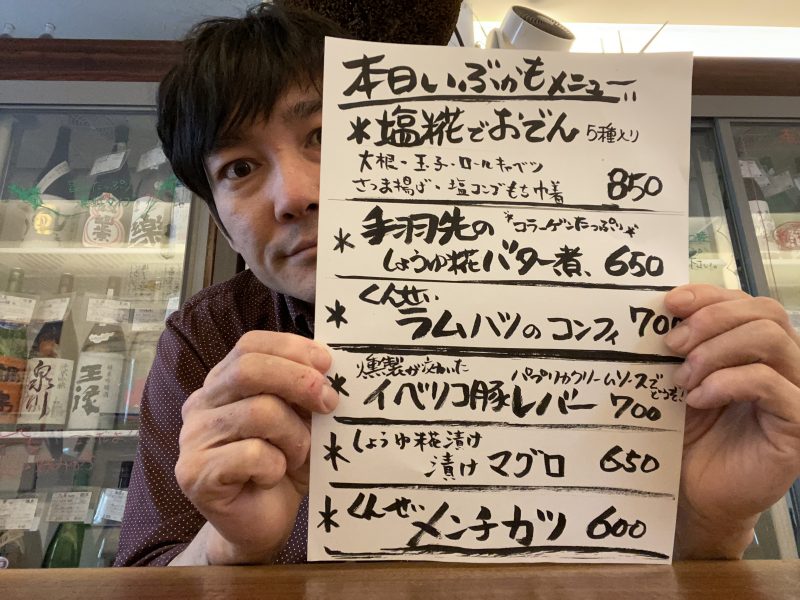 本日いぶかもメニュー
*塩糀でおでん 5種入り
大根・玉子・ロールキャベツ
さつま揚げ・塩コンブもち巾着 850
*手羽先の *コラーゲンたっぷり*
しょうゆ糀バター煮、650
*くんせい
ラムハツのコンフィ 700
燻製が効いた パプリカクリームソースで
どうぞ!
*イベリコ豚レバー 700
*しょうゆ糀漬け
漬けマグロ 650
*くんせいメンチカツ 600
泉川
玉塚